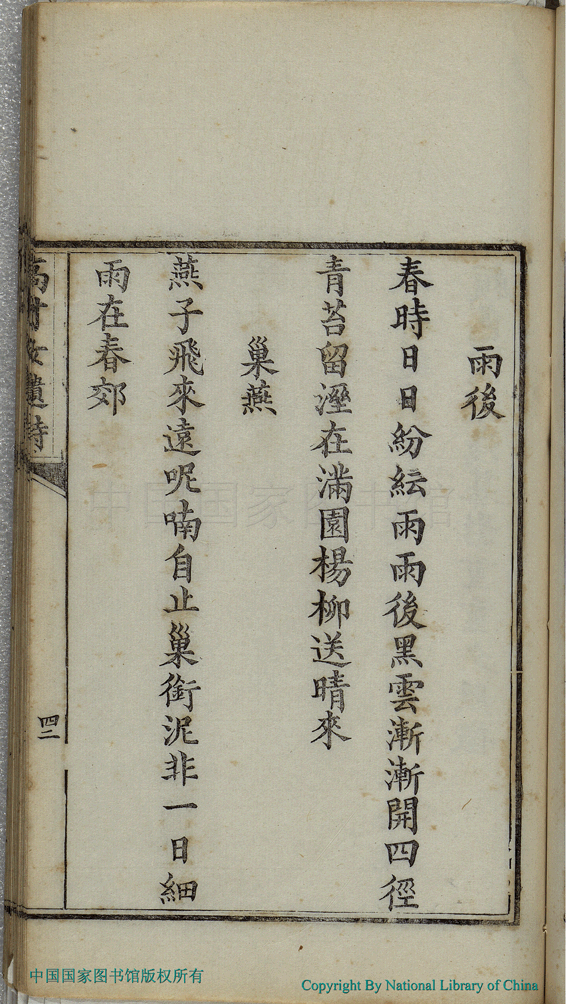 雨後
春時日日紛紜雨雨後黑雲漸漸開四徑
青苔留溼在滿園楊柳送晴來
巢燕
燕子飛來遠呢喃自止巢銜泥非一日細
雨在春郊
遺詩
四二
中国国家图书馆
中国国家图书馆版权所有
Copyright By National Library of China